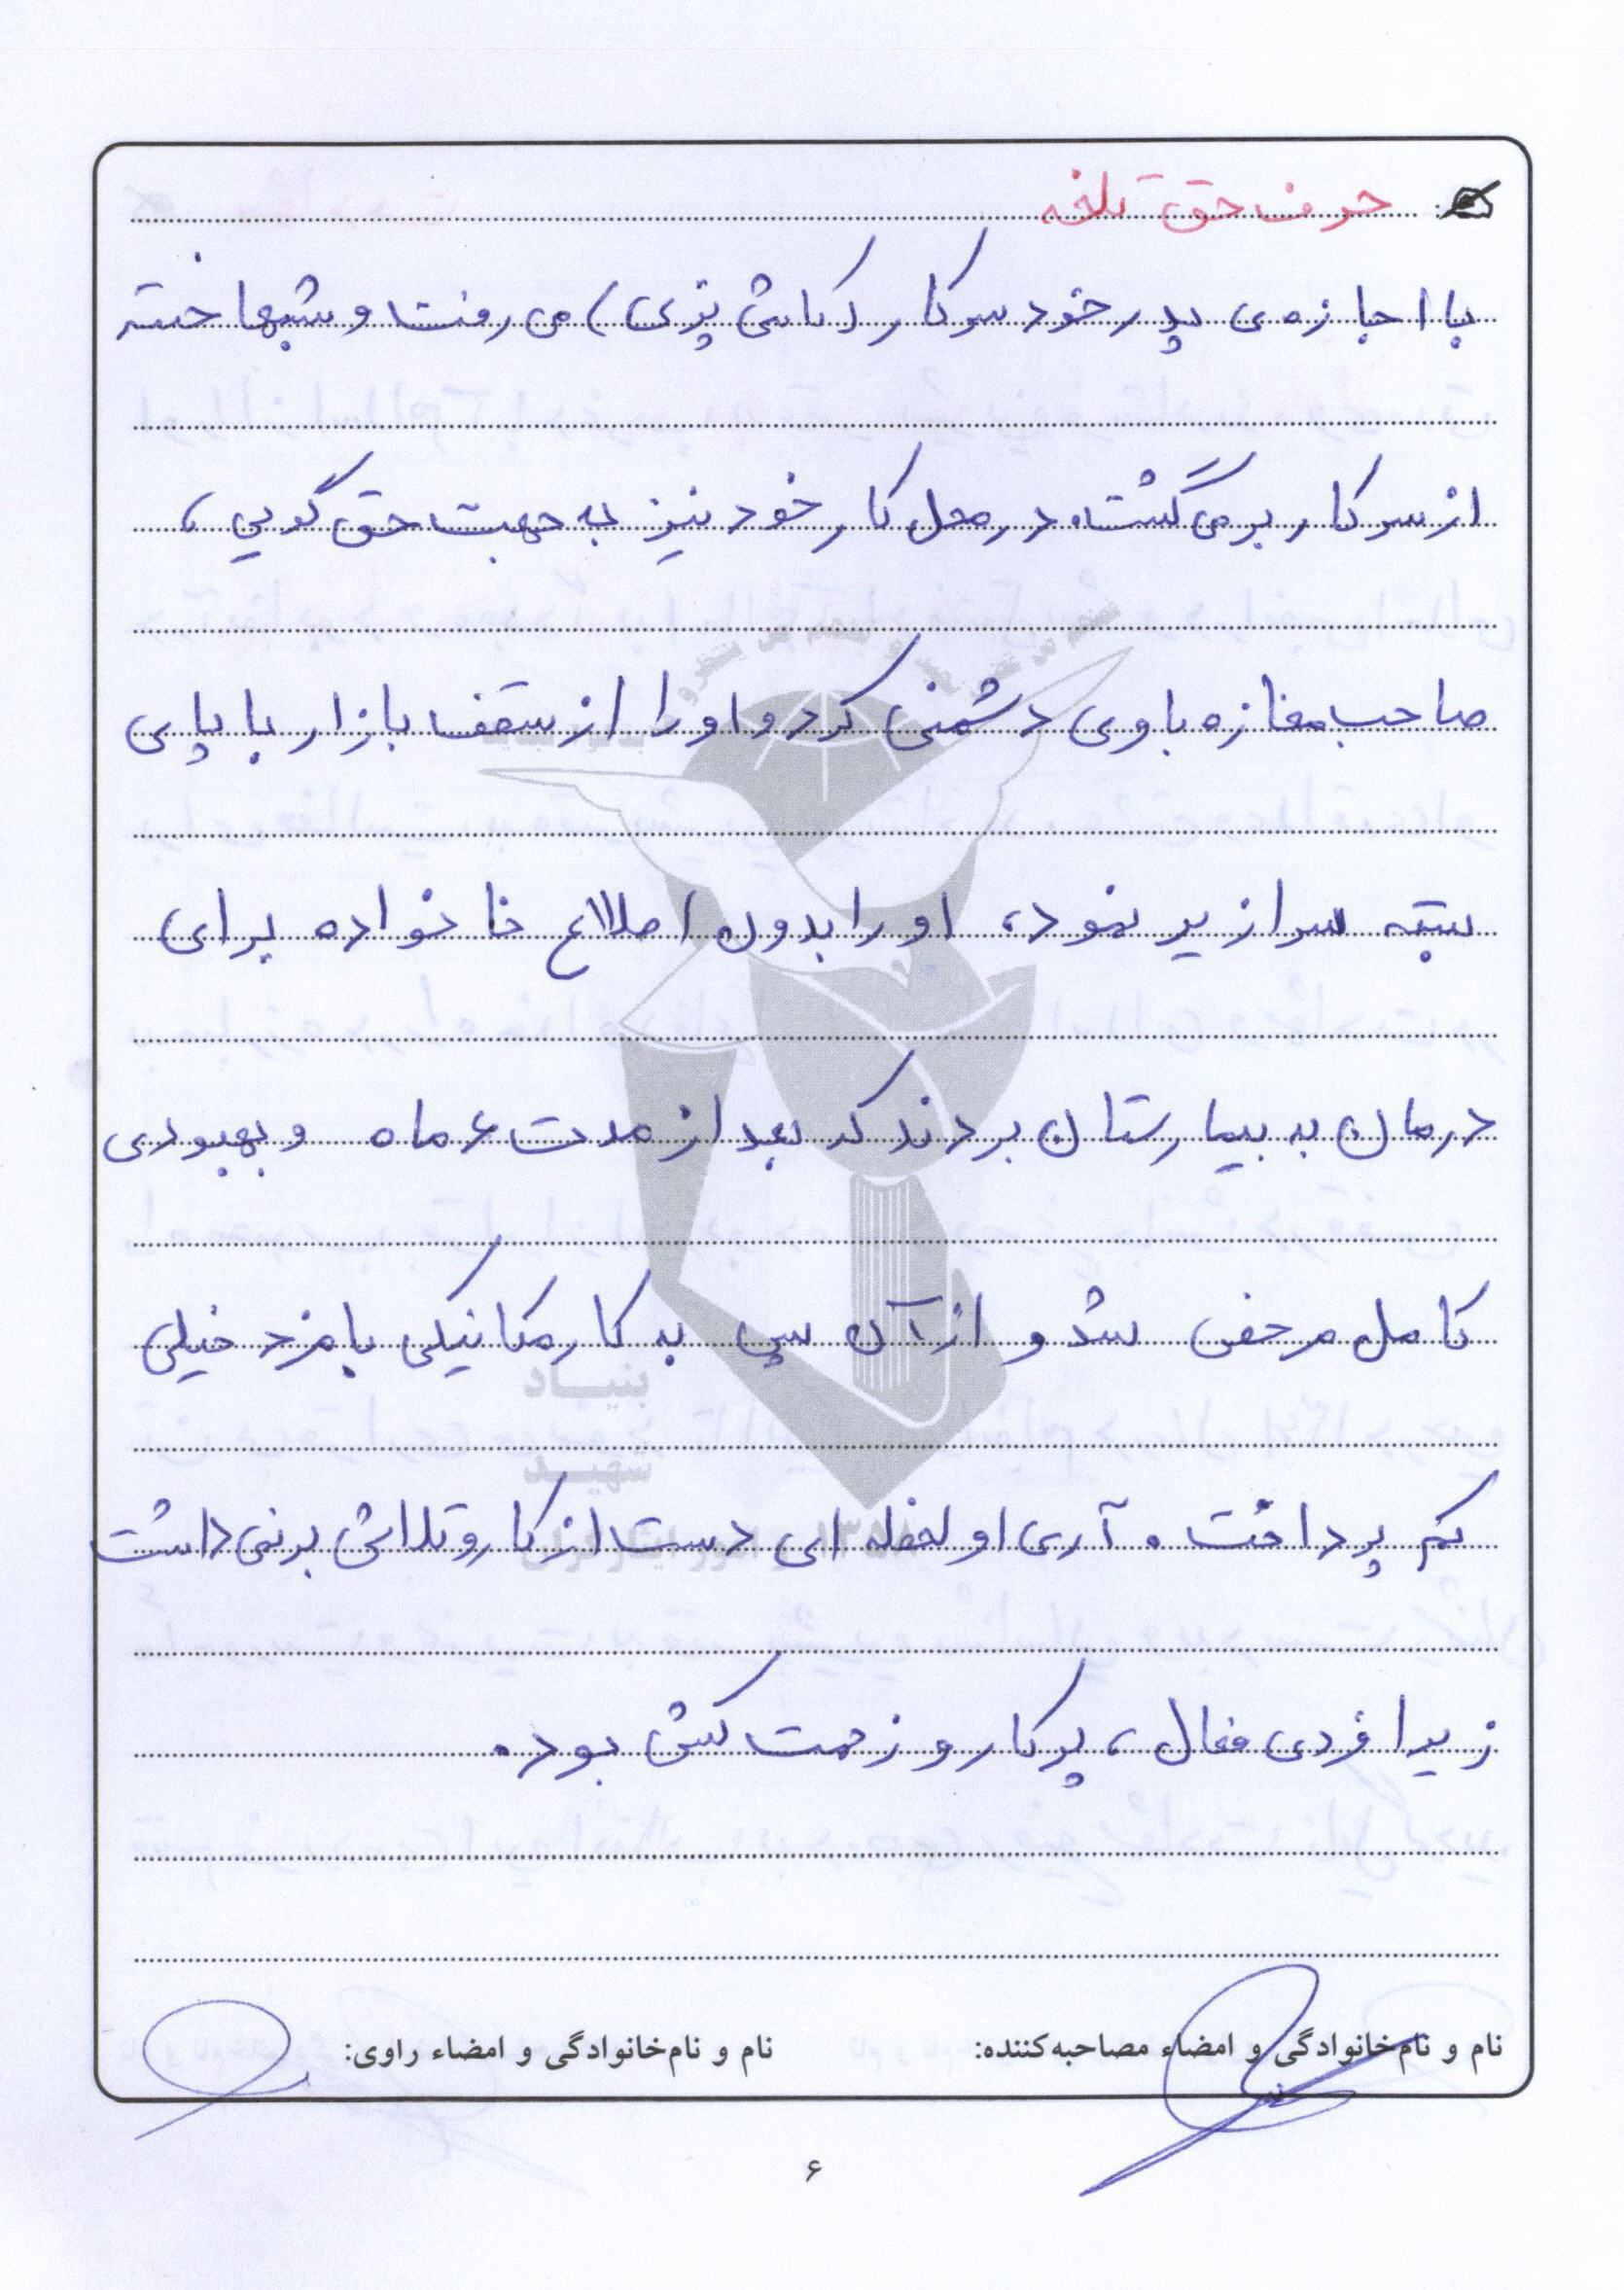 حرف حق تلخه
با اجازه ی پدر خود سر کار (کاشی پزی) می رفت و شبها خسته
از سر کار بر می گشت. در محل کار خود نیز به جهت حق گویی،
صاحب مغازه با وی دشمنی کرد و او را از سقف بازار با پای
بسته سرازیر نمود، او را بدون اطلاع خانواده برای
درمان به بیمارستان بردند که بعد از مدت ۶ ماه و بهبودی
کامل مرخص شد و از آن پس به کار مکانیکی با مزد خیلی
کم پرداخت. آری او لحظه ای دست از کار و تلاش برنمی داشت
زیرا فردی فعال، پرکار و زحمت کش بود.
بنیاد
شهید
نام و نام‌خانوادگی و امضاء مصاحبه‌کننده:
نام و نام‌خانوادگی و امضاء راوی:
۶